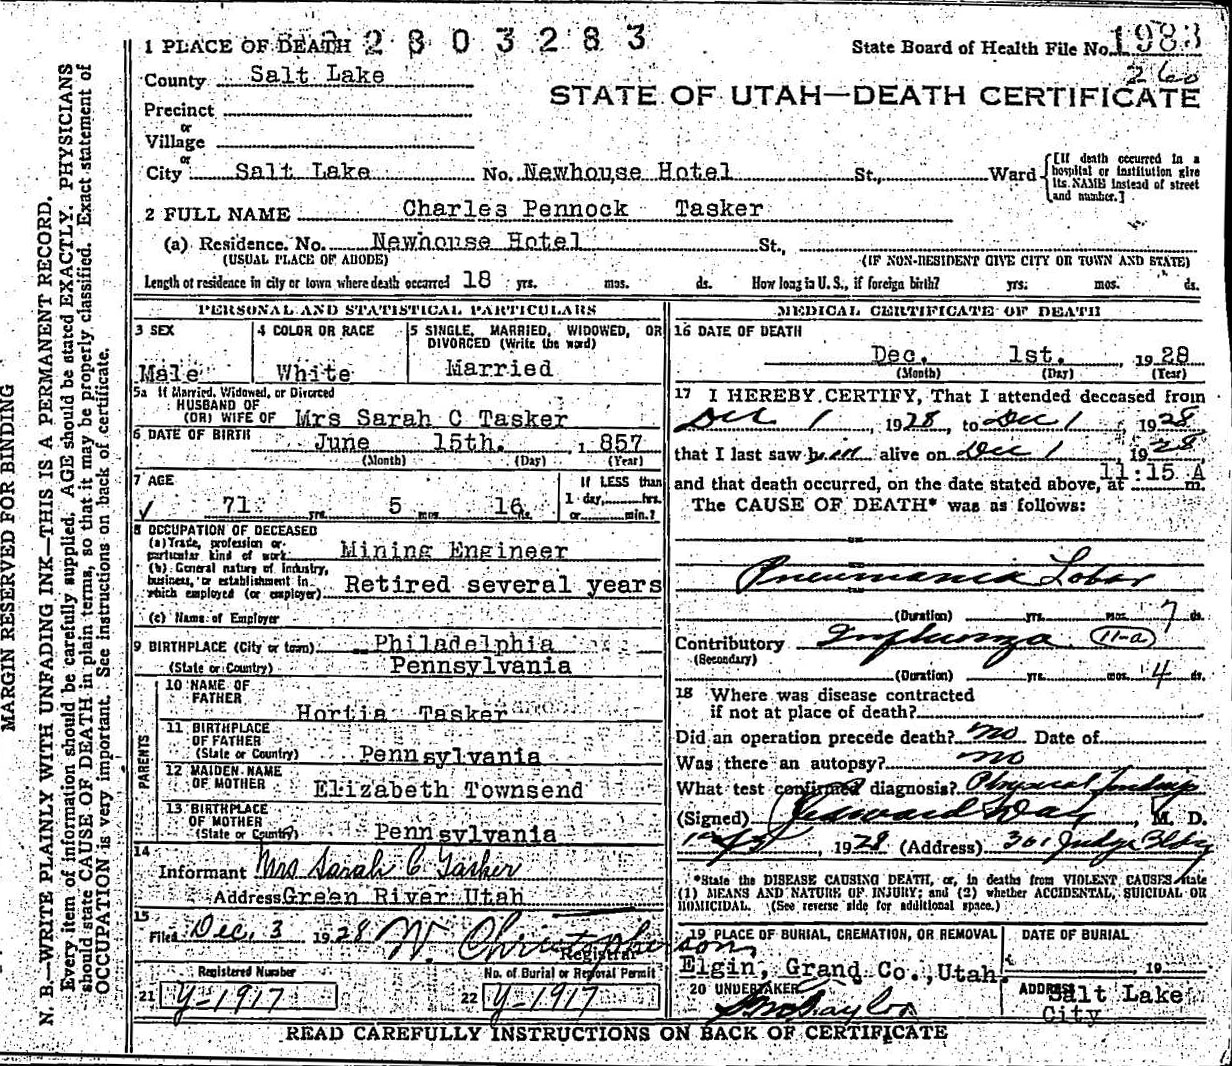 1 PLACE OF DEATH 2803283
State Board of Health File No. 1983
260
County Salt Lake
STATE OF UTAH—DEATH CERTIFICATE
Precinct
or
Village
or
City Salt Lake No. Newhouse Hotel St., Ward
[If death occurred in a hospital or institution give its NAME instead of street and number.]
2 FULL NAME Charles Pennock Tasker
(a) Residence. No. Newhouse Hotel St.,
(USUAL PLACE OF ABODE) (IF NON-RESIDENT GIVE CITY OR TOWN AND STATE)
Length of residence in city or town where death occurred 18 yrs. mos. ds. How long in U. S., if foreign birth? yrs. mos. ds.
PERSONAL AND STATISTICAL PARTICULARS
3 SEX
Male
4 COLOR OR RACE
White
5 SINGLE, MARRIED, WIDOWED, OR
DIVORCED (Write the word)
Married
5a If Married, Widowed, or Divorced
HUSBAND OF
(OR) WIFE OF Mrs Sarah C Tasker
6 DATE OF BIRTH June 15th. 1857
(Month) (Day) (Year)
7 AGE
71 yrs. 5 mos 16 ds.
If LESS than
1 day, hrs.
or min.?
8 OCCUPATION OF DECEASED
(a) Trade, profession or
particular kind of work Mining Engineer
(b) General nature of Industry,
business, or establishment in
which employed (or employer) Retired several years
(c) Name of Employer
9 BIRTHPLACE (City or town) Philadelphia
(State or Country) Pennsylvania
PARENTS
10 NAME OF
FATHER
Hortia Tasker
11 BIRTHPLACE
OF FATHER
(State or Country) Pennsylvania
12 MAIDEN NAME
OF MOTHER Elizabeth Townsend
13 BIRTHPLACE
OF MOTHER
(State or Country) Pennsylvania
14
Informant Mrs Sarah C. Tasker
Address Green River Utah
15
Filed Dec, 3 1928 W. Christopherson
Registrar
Registered Number
21 Y-1917
No. of Burial or Removal Permit
22 Y-1917
MEDICAL CERTIFICATE OF DEATH
16 DATE OF DEATH
Dec. 1st. 1928
(Month) (Day) (Year)
17 I HEREBY CERTIFY, That I attended deceased from
Dec 1, 1928, to Dec 1, 1928
that I last saw him alive on Dec 1 1928
and that death occurred, on the date stated above, at 11:15 A m.
The CAUSE OF DEATH* was as follows:
Pneumonia Lobar
(Duration) yrs. mos. 7 ds.
Contributory Influenza 11-a
(Secondary)
(Duration) yrs. mos. 4 ds.
18 Where was disease contracted
if not at place of death?
Did an operation precede death? no Date of
Was there an autopsy? no
What test confirmed diagnosis? Physical findings
(Signed) Day, M. D.
, 1928 (Address) 301 Judge Bldg
*State the DISEASE CAUSING DEATH, or, in deaths from VIOLENT CAUSES, state
(1) MEANS AND NATURE OF INJURY; and (2) whether ACCIDENTAL, SUICIDAL OR
HOMICIDAL. (See reverse side for additional space.)
19 PLACE OF BURIAL, CREMATION, OR REMOVAL
Elgin, Grand Co., Utah.
DATE OF BURIAL
, 19
20 UNDERTAKER
Taylor
ADDRESS Salt Lake
City
READ CAREFULLY INSTRUCTIONS ON BACK OF CERTIFICATE
MARGIN RESERVED FOR BINDING
N. B.—WRITE PLAINLY WITH UNFADING INK—THIS IS A PERMANENT RECORD.
Every item of information should be carefully supplied. AGE should be stated EXACTLY. PHYSICIANS
should state CAUSE OF DEATH in plain terms, so that it may be properly classified. Exact statement of
OCCUPATION is very important. See instructions on back of certificate.